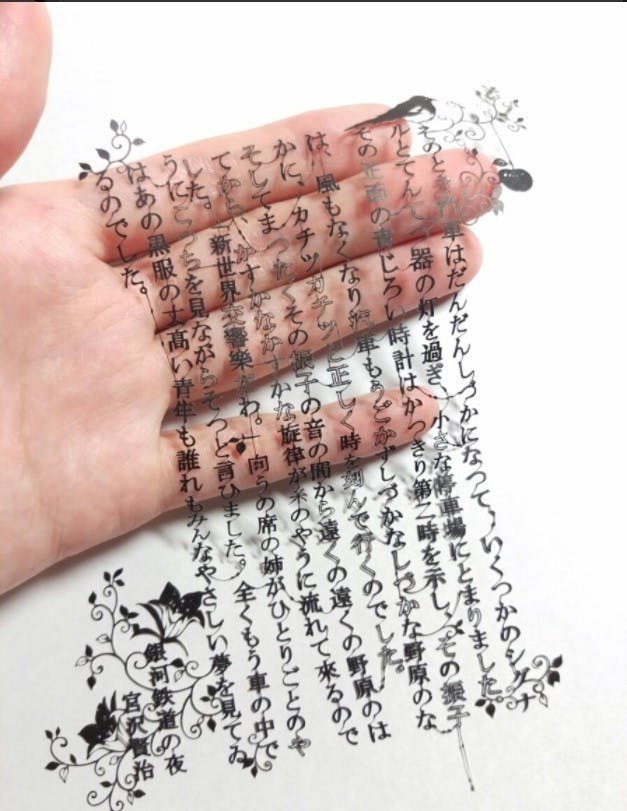 そのとき汽車はだんだんしづかになつて、いくつかのシグナ
ルとてんてつ器の灯を過ぎ、小さな停車場にとまりました。
その正面の青じろい時計はかつきり第二時を示し、その振子
は、風もなくなり汽車もうごかずしづかなしづかな野原のな
かに、カチツカチツと正しく時を刻んで行くのでした。
そしてまつたくその振子の音の間から遠くの遠くの野原のは
てから、かすかなかすかな旋律が糸のやうに流れて來るので
した。「新世界交響樂だわ。」向うの席の姉がひとりごとのや
うにこつちを見ながらそつと言ひました。全くもう車の中で
はあの黒服の丈高い青年も誰れもみんなやさしい夢を見てゐ
るのでした。
銀河鉄道の夜
宮沢賢治